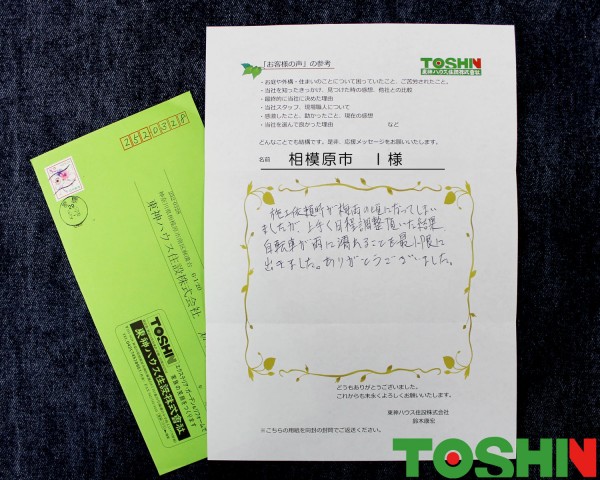 「お客様の声」の参考
TOSHIN
東神ハウス住設株式会社
・お庭や外構・住まいのことについて困っていたこと、ご苦労されたこと。
・当社を知ったきっかけ、見つけた時の感想、他社との比較
・最終的に当社に決めた理由
・当社スタッフ、現場職人について
・感激したこと、助かったこと、現在の感想
・当社を選んで良かった理由　　など
どんなことでも結構です。是非、応援メッセージをお願いいたします。
名前　相模原市　I様
施工依頼時が梅雨の頃になってしまい
ましたが、上手く日程調整頂いた結果
自転車が雨に濡れることを最小限に
出来ました。ありがとうございました。
どうもありがとうございました。
これからも末永くよろしくお願いいたします。
東神ハウス住設株式会社
鈴木康宏
※こちらの用紙を同封の封筒でご返送ください。
2520328
東神ハウス住設株式会社
TOSHIN
東神ハウス住設株式会社
TOSHIN